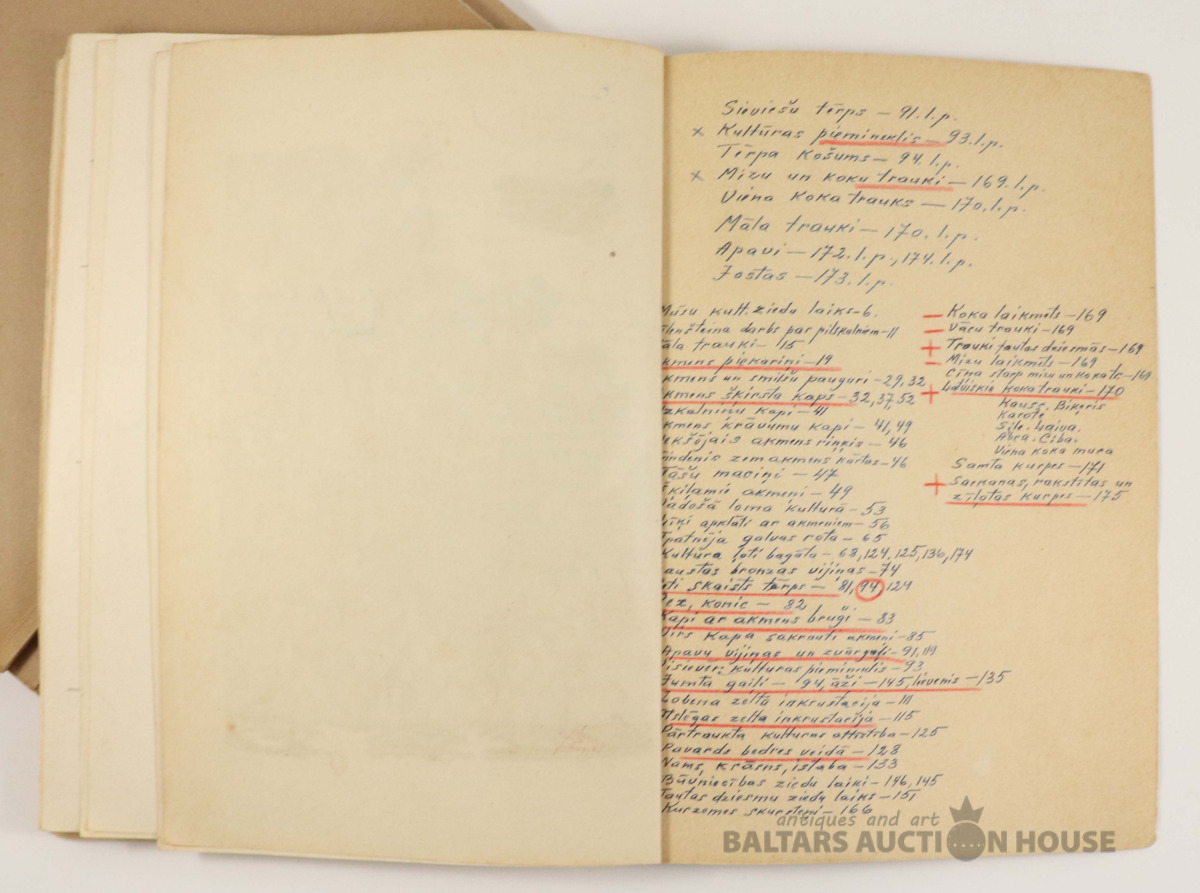 Sieviešu tērps — 91.l.p.
x Kultūras piemineklis — 93.l.p.
Tērpa košums — 94.l.p.
x Mizu un koku trauki — 169.l.p.
Viena koka trauks — 170.l.p.
Māla trauki — 170.l.p.
Apavi — 172.l.p., 174.l.p.
Jostas — 173.l.p.
Mūsu kult. ziedu laiks - 6.
darbs par pilskalniem - 11
trauki - 15
piekariņi - 19
un smilšu pauguri - 29, 32
šķirsta kaps - 32, 37, 52
kapi - 41
krāvumu kapi - 41, 49
akmens riņķis - 46
zem akmens kārtas - 46
Tāšu maciņi - 47
akmeņi - 49
loma kulturā - 53
apklāti ar akmeņiem - 56
galvas rota - 65
Kultūra ļoti bagāta - 68, 124, 125, 136, 174
bronzas vijiņas - 74
skaists tērps — 81, 94, 124
konic — 82
Kapi ar akmens bruģi — 83
Virs kapa sakrauti akmeņi - 85
Apavu vijiņas un zvārguļi - 91, 119
kulturas piemineklis - 93
Jumta gaiļi — 94, āži — 145, lievenis — 135
Zobena zelta inkrustacija - 111
zelta inkrustacija - 115
Pārtraukta kulturas attīstība - 125
Pavards bedres veidā - 128
Nams, krāsns, istaba - 133
Būvniecības ziedu laiki - 146, 145
Tautas dziesmu ziedu laiks - 151
Kurzemes - 166
— Koka laikmets - 169
— Vācu trauki - 169
+ Trauki tautas dziesmās - 169
— Mizu laikmets - 169
Cīņa starp mizu un koka tr. - 169
+ koka trauki - 170
Kauss. Biķeris
Karote
Sile. Laiva.
Abra. Ciba.
Viena koka muca
Samta kurpes - 171
+ Sarkanas, rakstītas un
zīļotas kurpes - 175
antiques and art
BALTARS AUCTION HOUSE